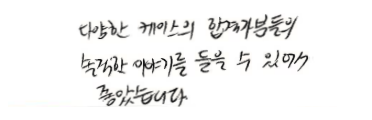 다양한 케이스의 합격자분들의
솔직한 이야기를 들을 수 있어서
좋았습니다